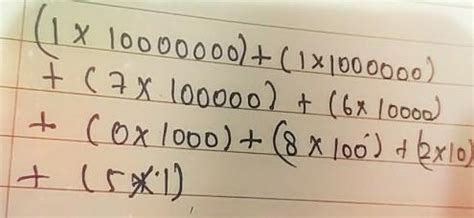 (1 x 10000000) + (1x1000000)
+ (7 x 100000) + (6x 10000)
+ (0 x 1000) + (8 x 100) + (2x10)
+ (5 x 1)